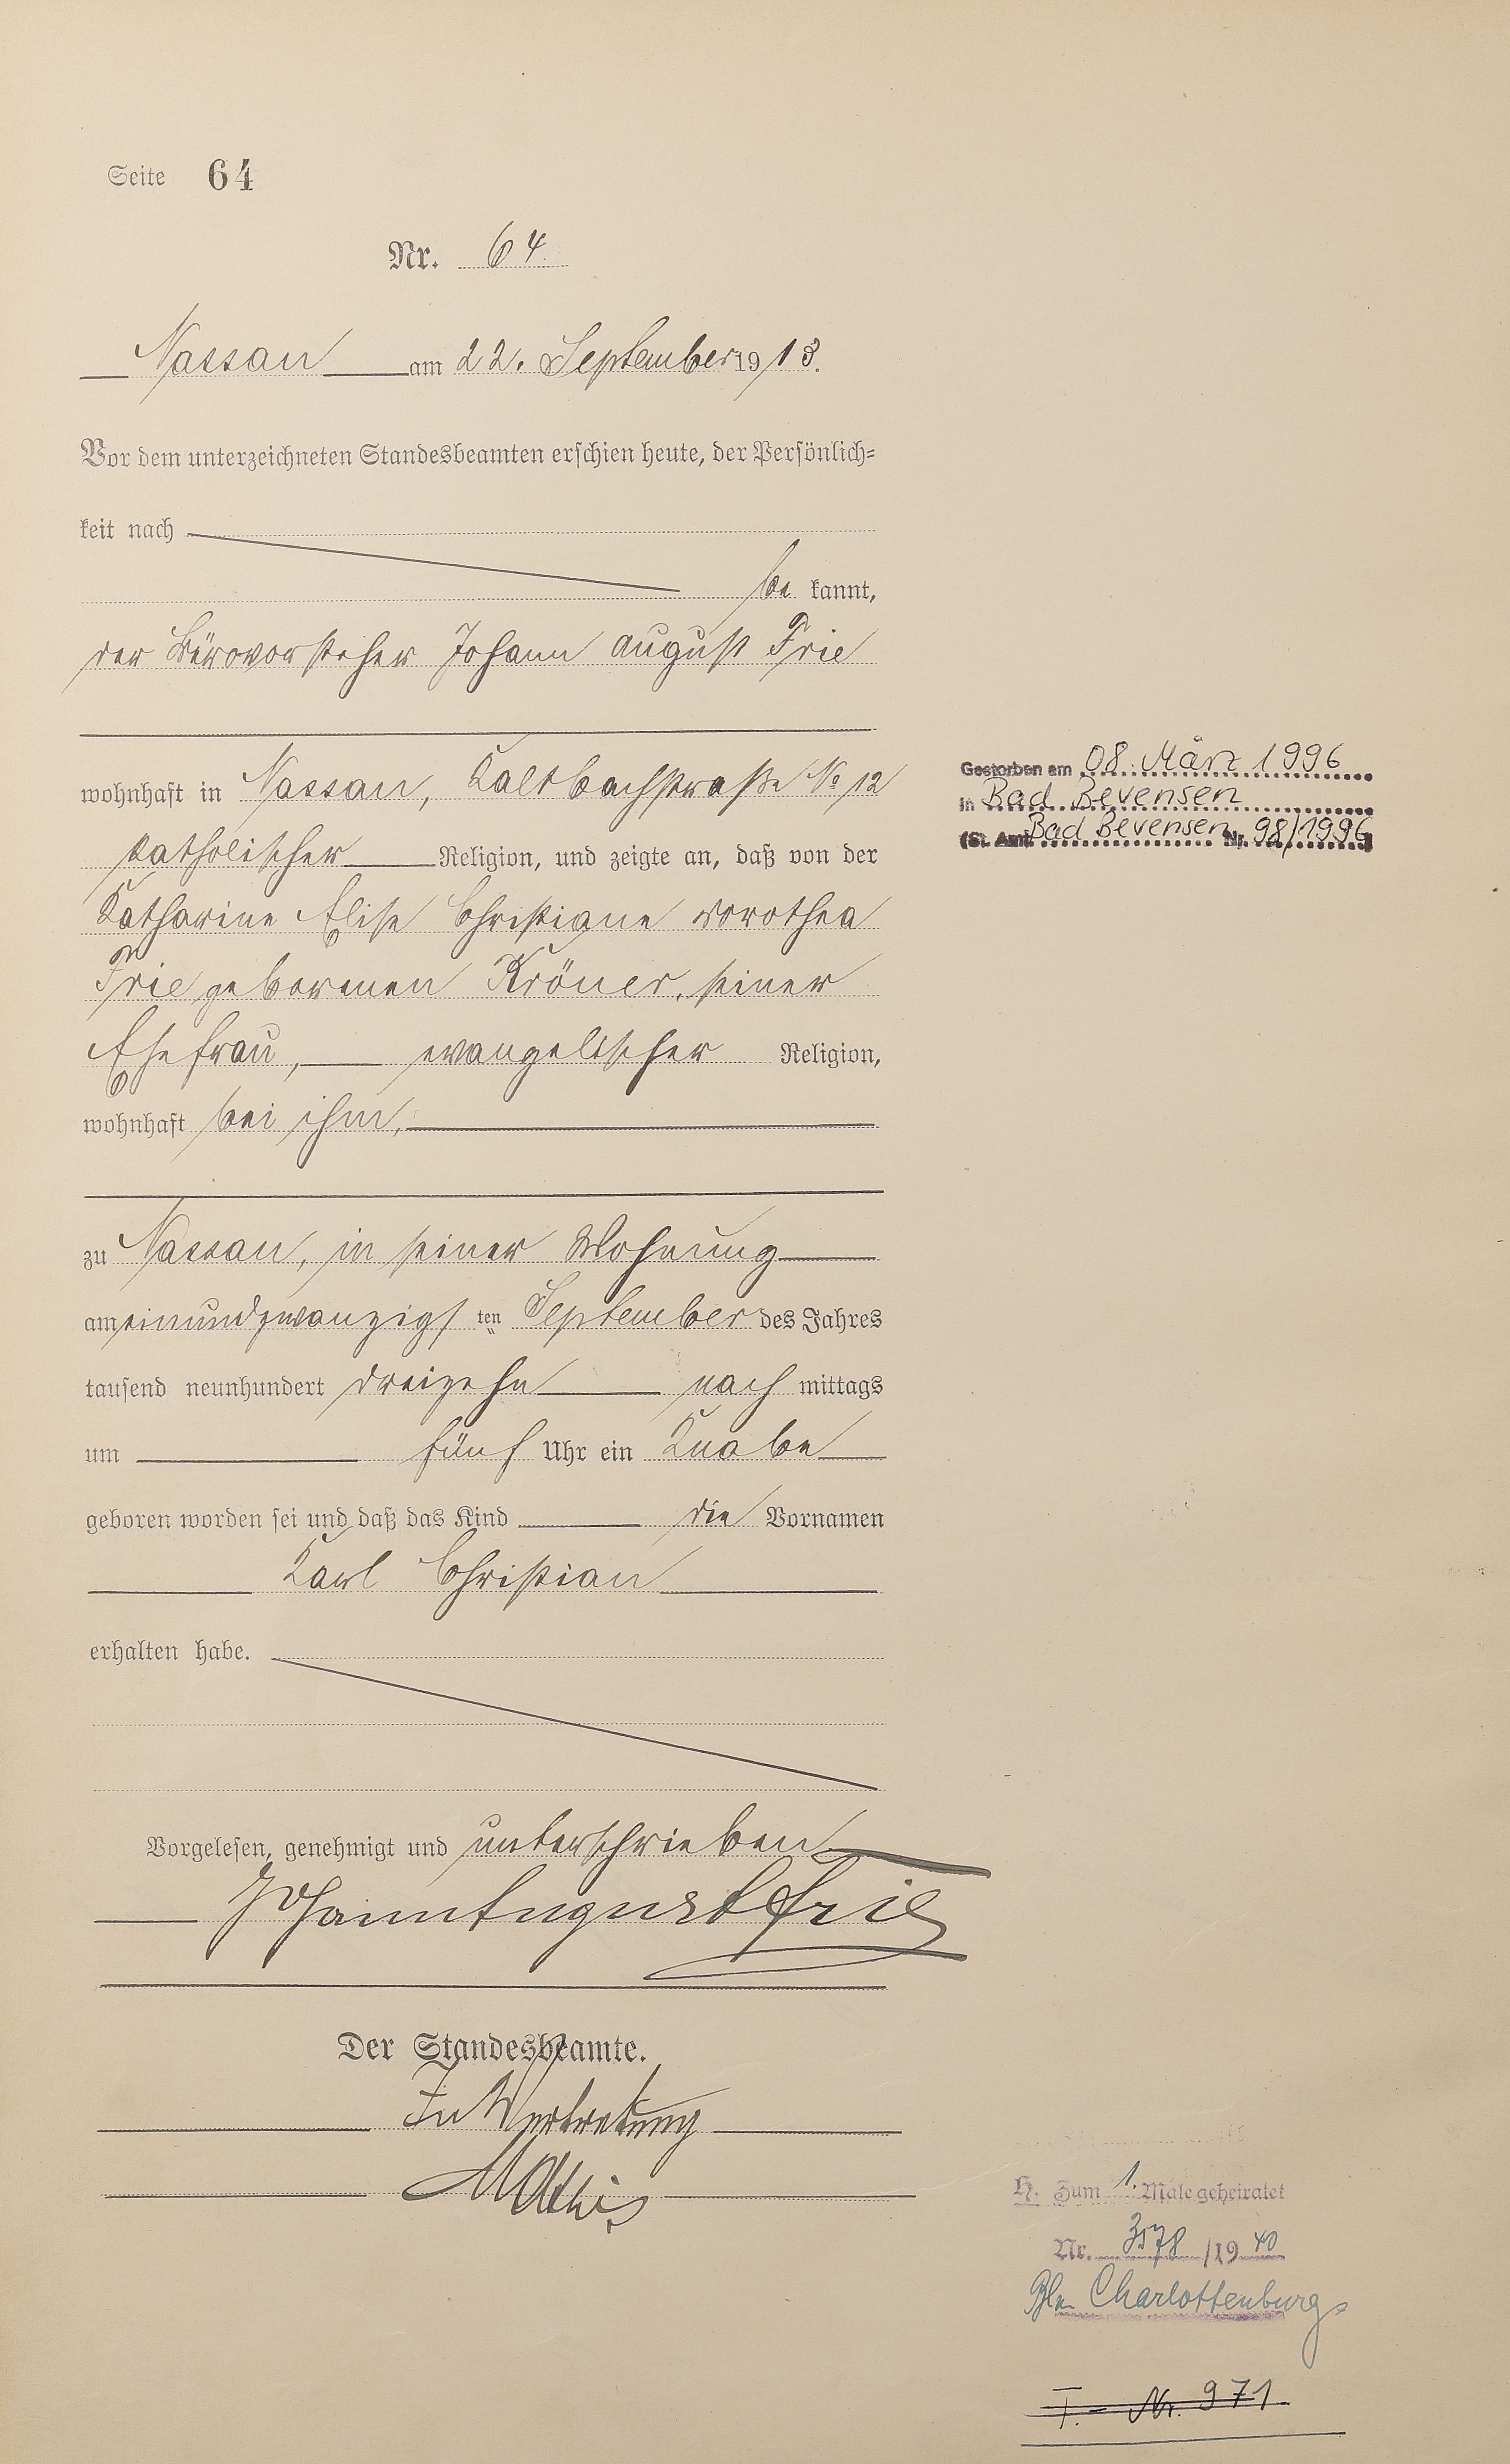 Seite 64
Nr. 64
Nassau am 22. September 1913.
Vor dem unterzeichneten Standesbeamten erschien heute, der Persönlich=
keit nach
be kannt,
der Bürovorsteher Johann August Frie
wohnhaft in Nassau, Kaltbachstraße No 12
katholischer Religion, und zeigte an, daß von der
Katharine Elise Christiane Dorothea
Frie geborenen Kröner, seiner
Ehefrau, evangelischer Religion,
wohnhaft bei ihm,
zu Nassau, in seiner Wohnung
am einundzwanzigsten September des Jahres
tausend neunhundert dreizehn nach mittags
um fünf Uhr ein Knabe
geboren worden sei und daß das Kind die Vornamen
Karl Christian
erhalten habe.
Vorgelesen, genehmigt und unterschrieben
Johann August Frie
Der Standesbeamte.
In Vertretung
Gestorben am 08. März 1996
in Bad Bevensen
(St. Amt Bad Bevensen Nr. 98/1996)
H. Zum 1. Male geheiratet
Nr. 3578 /1940
Bln Charlottenburg
T. - Nr. 971